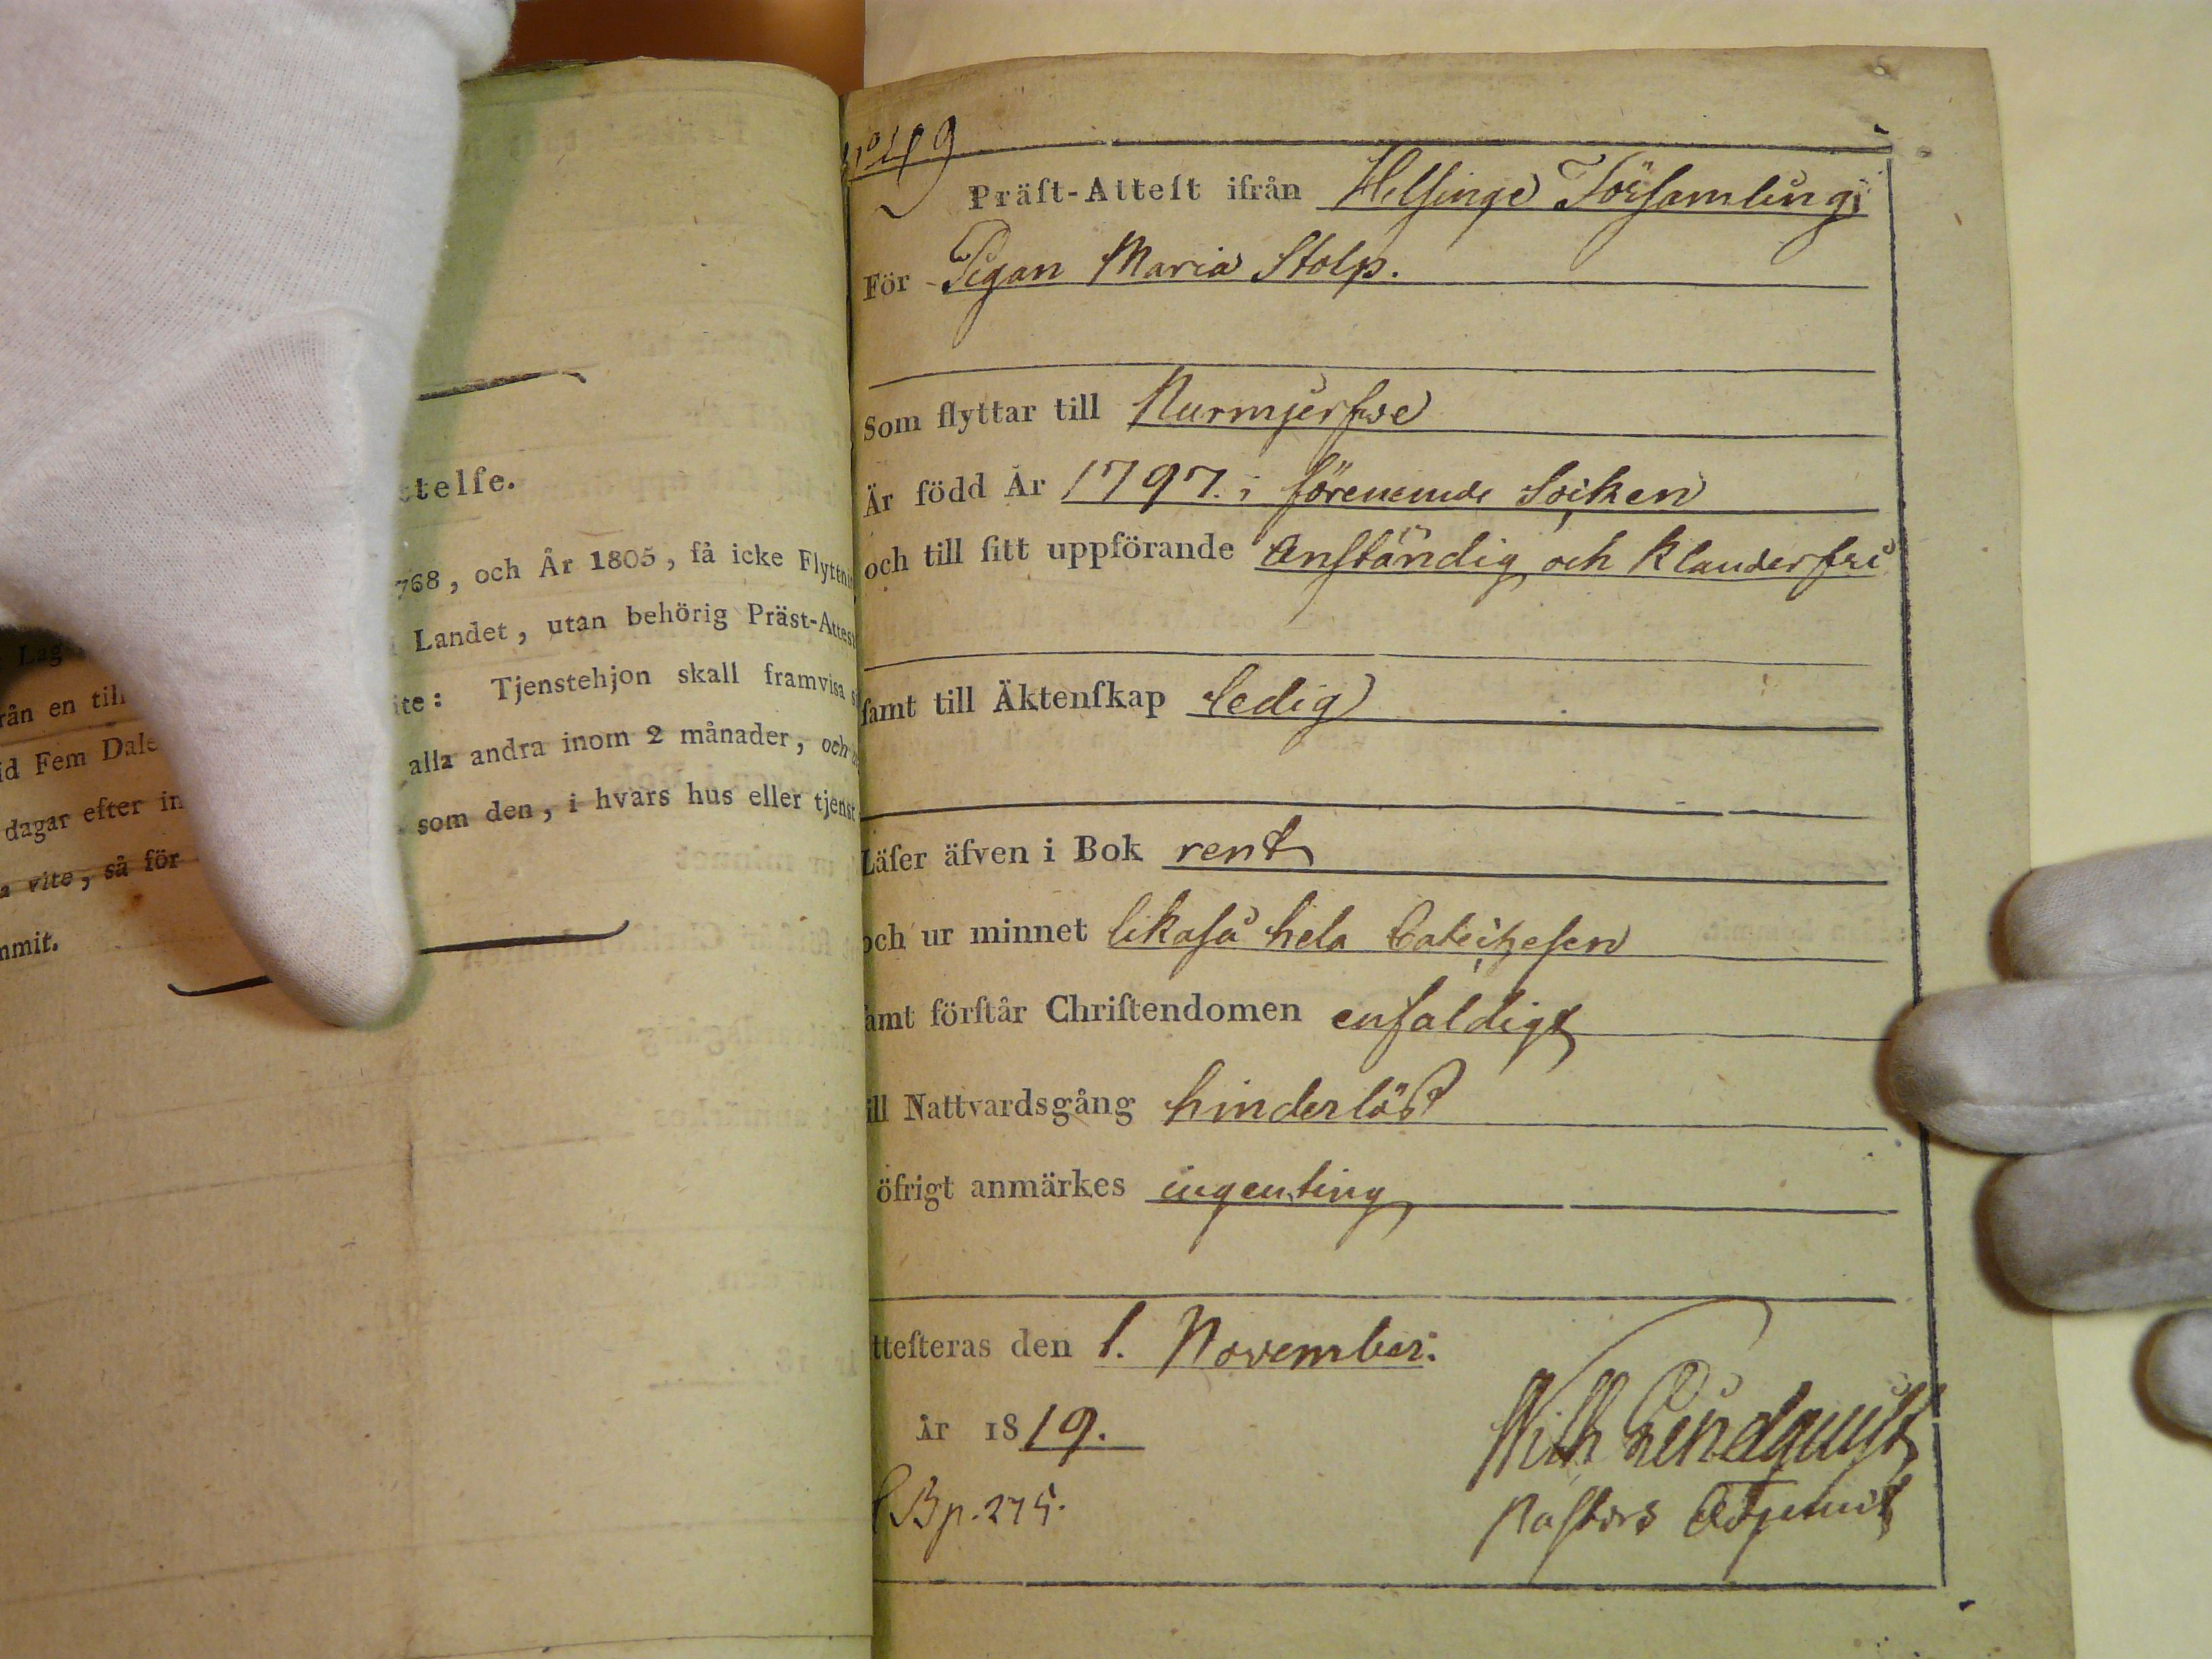 ttelſe.
768, och År 1805, få icke Flyttni
Landet, utan behörig Präst-Attest
ite: Tjenstehjon skall framvisa s
rån en till
id Fem Dale
alla andra inom 2 månader, och
dagar efter in
som den, i hvars hus eller tjenst
a vite, så för
mmit.
No 49
Präſt-Atteſt ifrån Helsinge Församling
För Pigan Maria Stolp.
Som flyttar till Nurmjerfwe
Är född År 1797. i förenemde Socken
och till ſitt uppförande anständig och klanderfri
ſamt till Äktenſkap ledig
Läſer äfven i Bok rent
och ur minnet likaså hela Catechesen
ſamt förſtår Chriſtendomen enfaldigt
ill Nattvardsgång hinderlös
öfrigt anmärkes ingenting
tteſteras den 1. November.
år 1819.
Wilh Lindquist
Pastors Adjunct
CB p. 275.